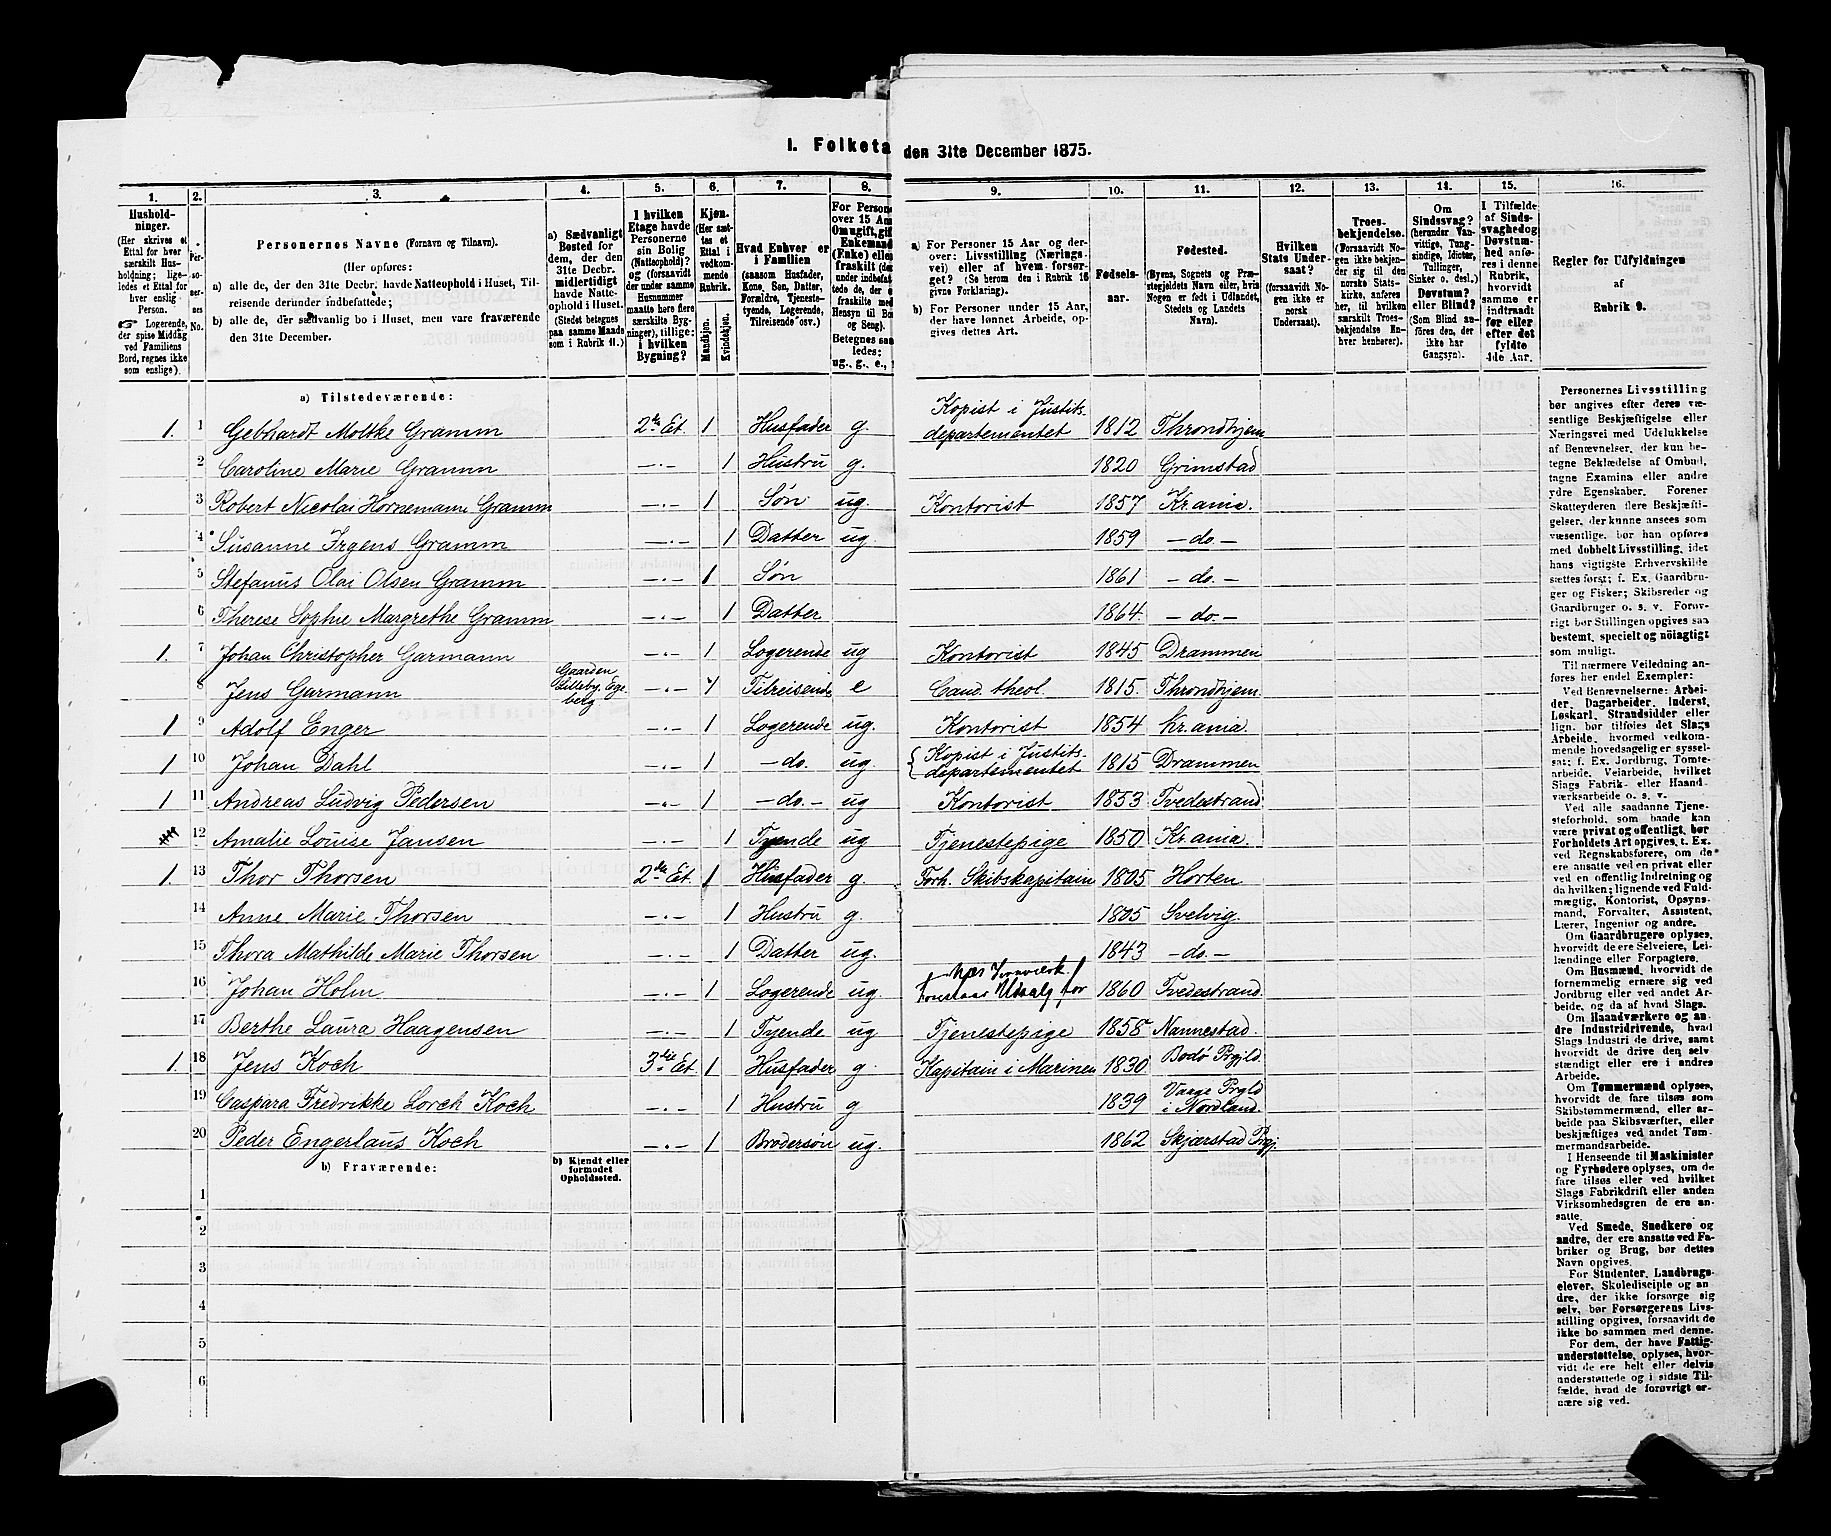 I. Folketa den 31te December 1875.
1. 2. 3. 4. 5. 6. 7. 8. 9. 10. 11. 12. 13. 14. 15. 16.
Hushold-
ninger.
(Her skrives et
Ettal for hver
særskilt Hus-
holdning; lige-
ledes et Ettal for
hver enslig
Person.
☞ Logerende,
der spise Middag
ved Familiens
Bord, regnes ikke
som enslige).
Personernes Navne (Fornavn og Tilnavn).
(Her opføres:
a) alle de, der den 31te Decbr. havde Natteophold i Huset, Til-
reisende derunder indbefattede;
b) alle de, der sædvanlig bo i Huset, men vare fraværende
den 31te December.
a) Sædvanligt
Bosted for
dem, der den
31te Decbr.
midlertidigt
havde Natte-
ophold i Huset.
(Stedet betegnes
paa samme Maade
som i Rubrik 11.)
I hvilken
Etage havde
Personerne
sin Bolig
(Natteophold)?
og (forsaavidt
der under samme
Husnummer
maatte høre flere
særskilte Byg-
ninger), tillige:
i hvilken
Bygning?
Kjøn.
(Her sæt-
tes et
Ettal i
vedkom-
mende
Rubrik.
Mandkjøn.
Kvindekjøn.
Hvad Enhver er
i Familien
(saasom Husfader,
Kone, Søn, Datter,
Forældre, Tjeneste-
tyende, Logerende,
Tilreisende osv.)
For Persone
over 15 Aa
Om ugift, gif
Enkemand
(Enke) elle
fraskilt (de
under indbefat-
tede, de e
fraskilte me
Hensyn til Bo
og Seng).
Betegnes saa
ledes:
ug., g., e.,
a) For Personer 15 Aar og der-
over: Livsstilling (Nærings-
vei) eller af hvem forsør-
get? (Se herom den i Rubrik 16
givne Forklaring).
b) For Personer under 15 Aar,
der have lønnet Arbeide, op-
gives dettes Art.
Fødsels-
aar.
Fødested.
(Byens, Sognets og Præ-
stegjeldets Navn eller, hvis
Nogen er født i Udlandet,
Stedets og Landets
Navn).
Hvilken
Stats Under-
saat?
(forsaavidt No-
gen ikke er
norsk
Undersaat).
Troes-
bekjendelse.
(Forsaavidt No-
gen ikke bekjen-
der sig til den
norske Stats-
kirke, anføres
her, til hvilken
særskilt Troes-
bekjendelse En-
hver henhører).
Om
Sindssvag?
(herunder Van-
vittige, Tung-
sindige, Idioter,
Tullinger,
Sinker o. desl.)
Døvstum?
eller Blind?
(Som Blind an-
føres den, der
ikke har
Gangsyn).
I Tilfælde
af Sinds-
svaghed og
Døvstum-
hed anfø-
res i denne
Rubrik,
hvorvidt
samme er
indtraadt
før eller
efter det
fyldte
4de Aar.
Regler for Udfyldningen
af
Rubrik 9.
a) Tilstedeværende:
1. 1 Gebhardt Moltke Gramm 2den Et. 1 Husfader g. Kopist i Justits-
departementet 1812 Throndhjem
2 Caroline Marie Gramm —·— 1 Hustru g. 1820 Grimstad
3 Robert Nicolai Hornemann Gramm —·— 1 Søn ug. Kontorist 1857 Kr.ania.
4 Susanne Irgens Gramm —·— 1 Datter ug. 1859 —do.—
5 Stefanus Olai Olsen Gramm —·— 1 Søn 1861 —do.—
6 Therese Sophie Margrethe Gramm —·— 1 Datter 1864. —do.—
1. 7 Johan Christopher Garmann —·— 1 Logerende ug Kontorist 1845 Drammen
8 Jens Garmann Gaarden
Lilleby, Ege
berg —·— 1 Tilreisende e Cand. theol. 1815. Throndhjem.
1 9 Adolf Enger —·— 1 Logerende ug. Kontorist 1854 Kr.ania.
1 10 Johan Dahl —·— 1 —do. ug. Kopist i Justits-
departementet 1815 Drammen
1 11 Andreas Ludvig Pedersen —·— 1 —do.— ug Kontorist 1853 Tvedestrand
12 Amalie Louise Jansen —·— 1 Tyende ug Tjenestepige 1850 Kr.ania.
1. 13 Thor Thorsen 2den Et. 1 Husfader g. Forh. Skibskapitain 1805 Horten
14 Anne Marie Thorsen —·— 1 Hustru g. 1805 Svelvig.
15 Thora Mathilde Marie Thorsen —·— 1 Datter ug. 1843 —do.—
16 Johan Holm —·— 1 Logerende ug. Næs Jernværk
Udsalg for 1860 Tvedestrand.
17 Berthe Laura Haagensen —·— 1 Tyende ug Tjenestepige 1858 Nannestad.
1. 18 Jens Koch 3die Et 1 Husfader g. Kapitain i Marinen 1830 Bodø Prgjld.
19 Caspara Fredrikke Lorch Koch —·— 1 Hustru g 1839 Vaage Prgld
i Nordland.
20 Peder Engerlaus Koch —·— 1 Brodersøn ug. 1862 Skjærstad Prgj.
b) Fraværende: b) Kjendt eller
formodet
Opholdssted.
1
2
3
4
5
6
Personernes Livsstilling
bør angives efter deres væ-
sentlige Beskjæftigelse eller
Næringsvei med Udelukkelse
af Benævnelser, der kun be-
tegne Beklædelse af Ombud,
tagne Examina eller andre
ydre Egenskaber. Forener
Skatteyderen flere Beskjæfti-
gelser, der kunne ansees som
væsentlige, bør han opføres
med dobbelt Livsstilling, idet
hans vigtigste Erhvervskilde
sættes først; f. Ex. Gaardbru-
ger og Fisker; Skibsreder og
Gaardbruger o. s. v. Forøv-
rigt bør Stillingen opgives saa
bestemt, specielt og nöiagtigt
som muligt.
Til nærmere Veiledning an-
føres her endel Exempler:
Ved Benævnelserne: Arbei-
der, Dagarbeider, Inderst,
Løskarl, Strandsidder eller
lign. bør tilføies det Slags
Arbeide, hvormed vedkom-
mende hovedsagelig er syssel-
sat; f. Ex. Jordbrug, Tomte-
arbeide, Veiarbeide, hvilket
Slags Fabrik- eller Haand-
værksarbeide o. s. v.
Ved alle saadanne Tjene-
steforhold, som baade kan
være privat og offentligt, bør
Forholdets Art opgives, t. Ex.
ved Regnskabsførere, om de
ere ansatte ved en privat eller
ved en offentlig Indretning og
da hvilken; lignende ved Fuld-
mægtig, Kontorist, Opsyns-
mand, Forvalter, Assistent,
Lærer, Ingeniør og andre.
Om Gaardbrugere oplyses,
hvorvidt de ere Selveiere, Lei-
lændinge eller Forpagtere.
Om Husmænd, hvorvidt de
fornemmelig ernære sig ved
Jordbrug eller ved andet Ar-
beide, og da af hvad Slags.
Om Haandværkere og an-
dre Industridrivende, hvad
Slags Industri de drive, samt
hvorvidt de drive den selv-
stændigt eller ere i andres
Arbeide.
Om Tømmermænd oplyses,
hvorvidt de fare tilsøs som
Skibstømmermænd, eller ar-
beide paa Skibsværfter, eller
beskjæftiges ved andet Tøm-
mermandsarbeide.
I Henseende til Maskinister
og Fyrbødere oplyses, om de
fare tilsøs eller ved hvilket
Slags Fabrikdrift eller anden
Virksomhedsgren de ere an-
satte.
Ved Smede, Snedkere og
andre, der ere ansatte ved Fa-
briker og Brug, bør dettes
Navn opgives.
For Studenter, Landbrugs-
elever, Skoledisciple og an-
dre, der ikke forsørge sig
selv, bør Forsørgerens Livs-
stilling opgives, forsaavidt de
ikke bo sammen med denne.
For dem, der have Fattig-
understøttelse, oplyses, hvor-
vidt de ere helt eller delvis
understøttede og i sidste Til-
fælde, hvad de forøvrigt er-
nære sig ved.